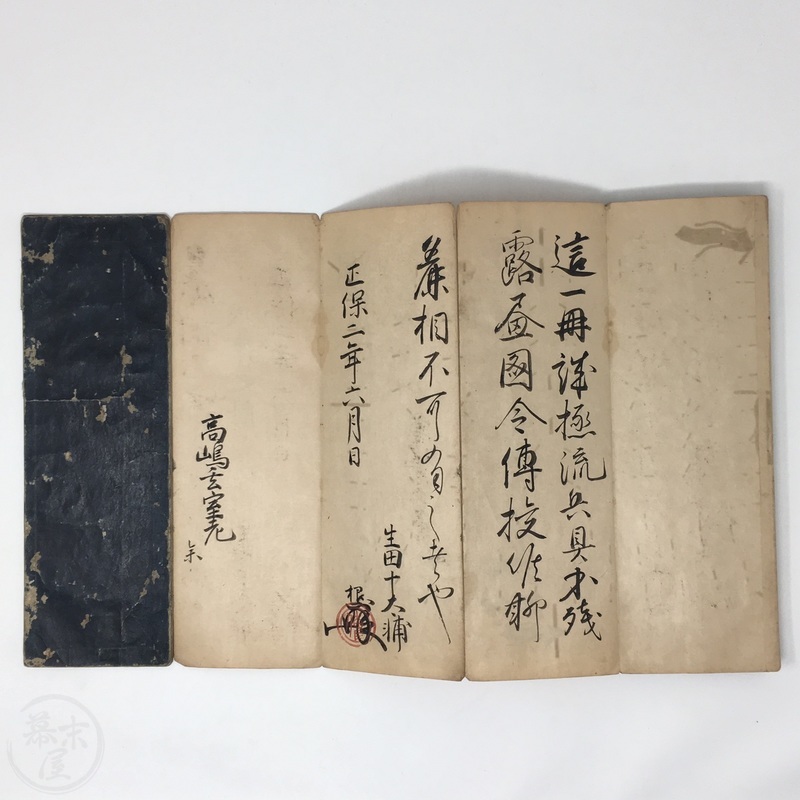 這一冊誠極流兵具不残
露畫圖令傳授候聊
麁相不可有之者也
正保二年六月日
生田十大輔
高嶋玄室老
参
幕末屋